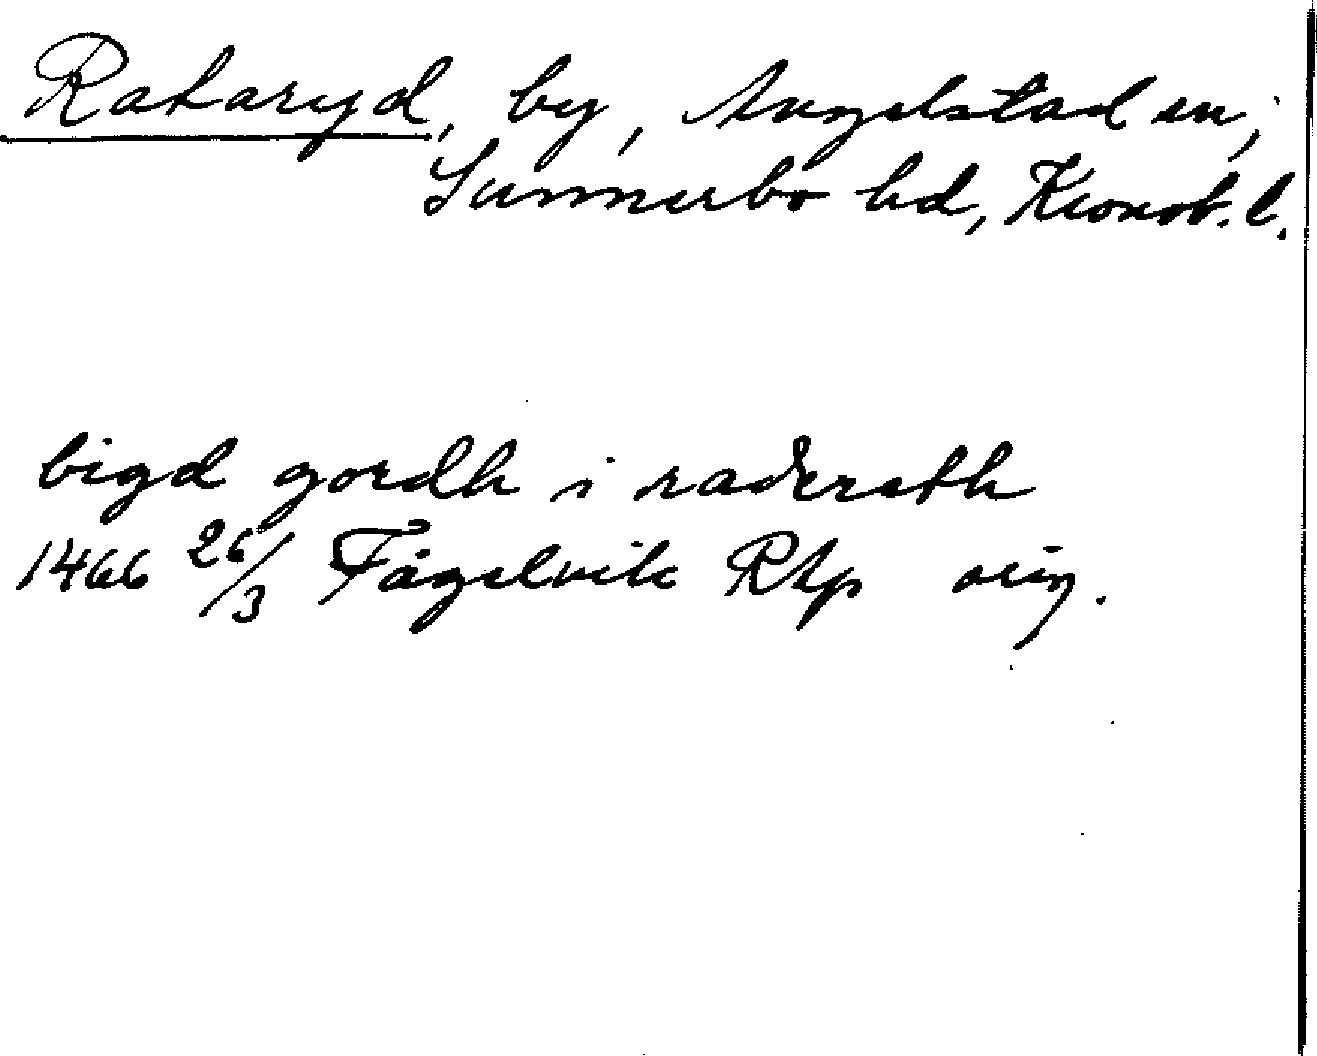 Rataryd, by, Angelstad sn,
Sunnerbo hd, Kronob. l.
bigd gordh i radereth
1466 26/3 Fågelvik Rhp orig.